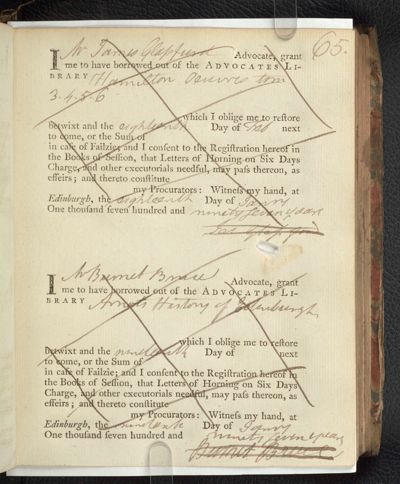 65.
I Mr James Glassfurd Advocate, grant
me to have borrowed out of the ADVOCATES LI-
BRARY Hamilton Oeuvres tom
3. 4. 5. 6
which I oblige me to reſtore
betwixt and the eighteenth Day of Feb next
to come, or the Sum of
in caſe of Failzie; and I conſent to the Regiſtration hereof in
the Books of Seſſion, that Letters of Horning on Six Days
Charge, and other executorials needful, may paſs thereon, as
effeirs; and thereto conſtitute
my Procurators: Witneſs my hand, at
Edinburgh, the eighteenth Day of Janry
One thouſand ſeven hundred and ninety seven years
I Mr Burnet Bruce Advocate, grant
me to have borrowed out of the ADVOCATES LI-
BRARY Arnots History of Edinburgh
which I oblige me to reſtore
betwixt and the nineteenth Day of next
to come, or the Sum of
in caſe of Failzie; and I conſent to the Regiſtration hereof in
the Books of Seſſion, that Letters of Horning on Six Days
Charge, and other executorials needful, may paſs thereon, as
effeirs; and thereto conſtitute
my Procurators: Witneſs my hand, at
Edinburgh, the nineteenth Day of Janry
One thouſand ſeven hundred and ninety seven years
Burnet Bruce